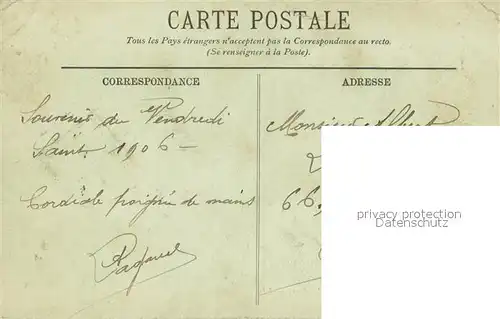 CARTE POSTALE
Tous les Pays étrangers n'acceptent pas la Correspondance au recto.
(Se renseigner à la Poste).
CORRESPONDANCE
ADRESSE
Souvenir du Vendredi
Saint 1906 -
Cordiale poignée de mains
Monsieur Albert
66,
privacy protection
Datenschutz